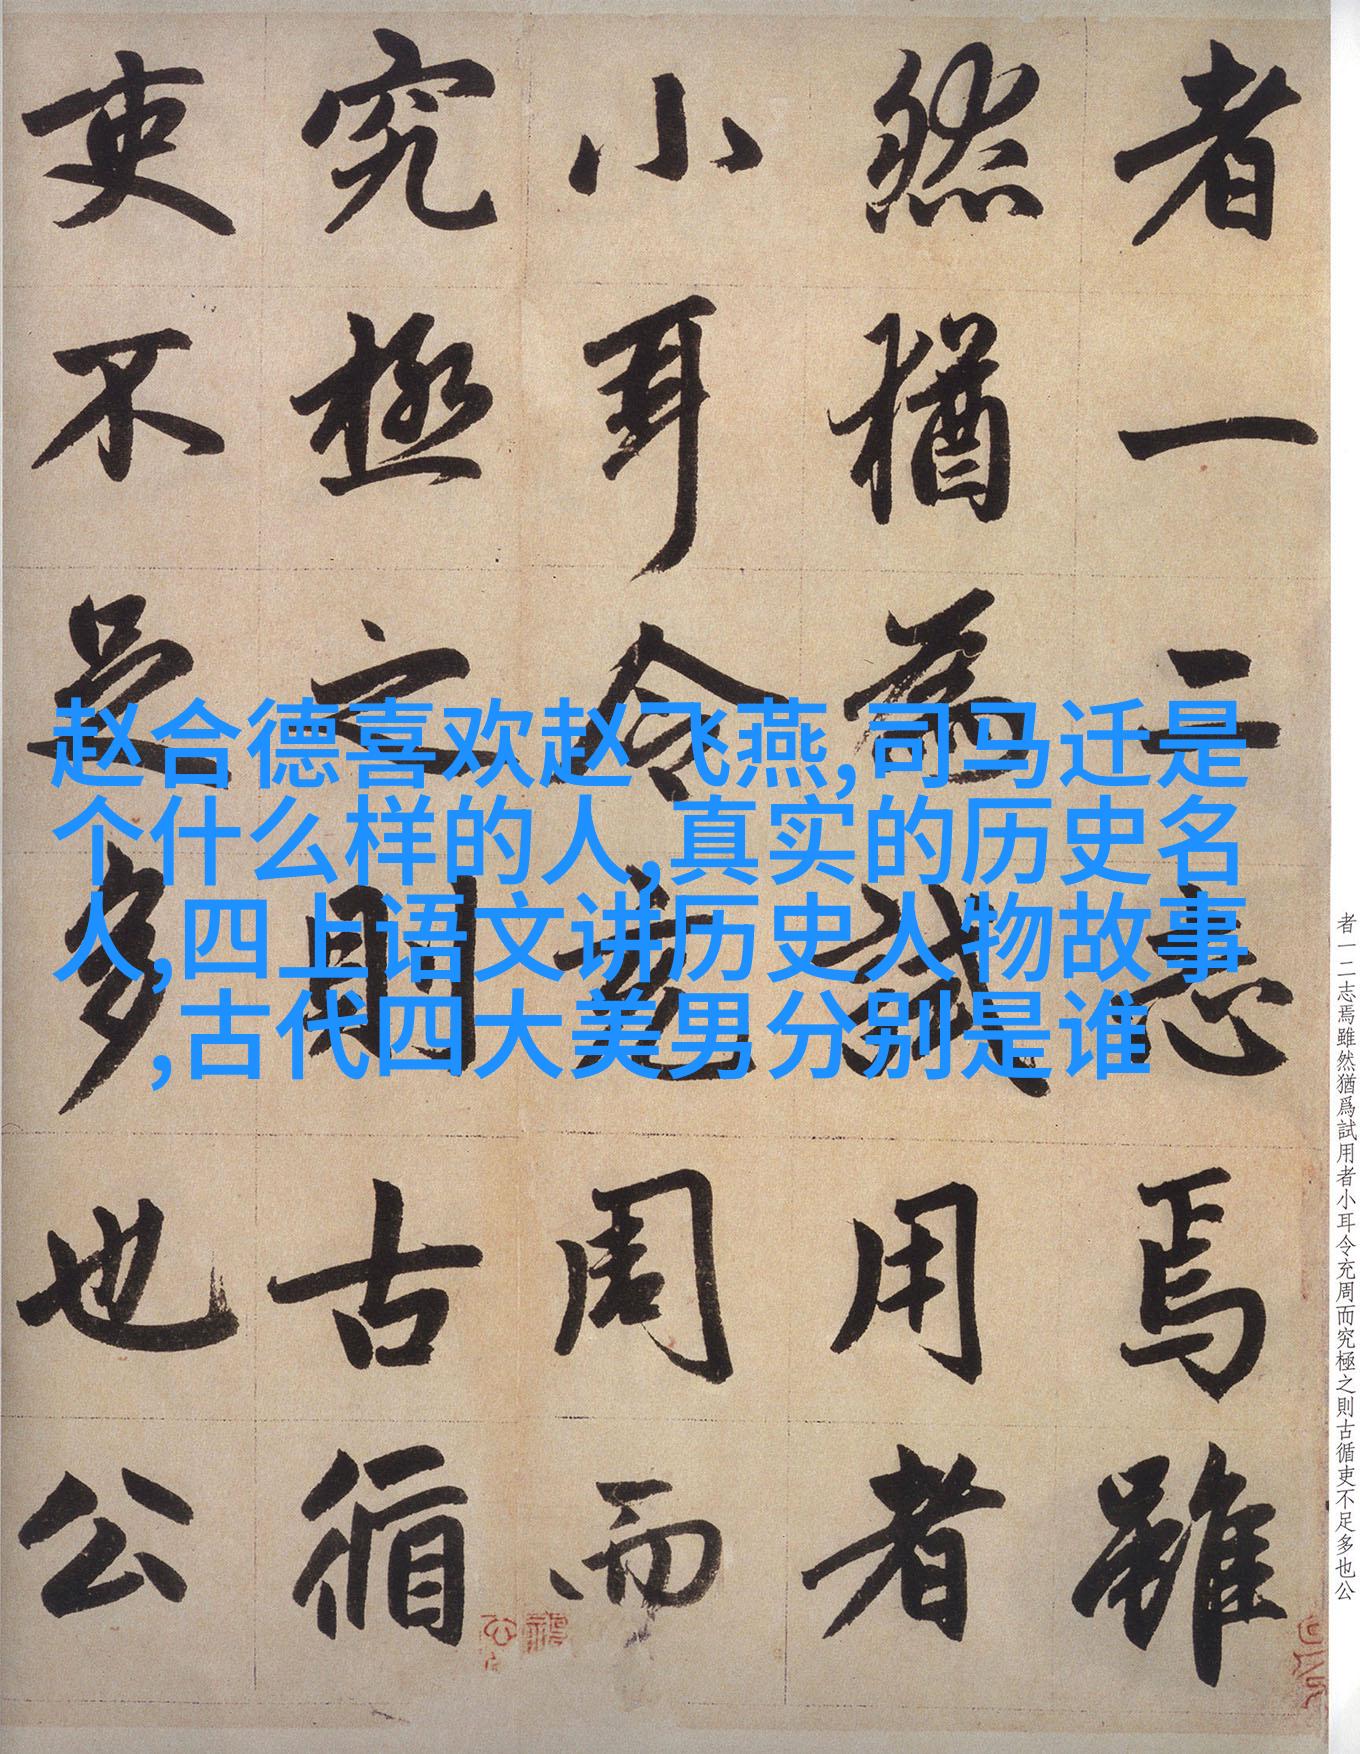 者一二志焉雖
然猶為試用者
小耳令充周而
究極之則古循
吏不足多也公
赵合德喜欢赵飞燕,司马迁是
个什么样的人,真实的历史名
人,四上语文讲历史人物故事
,古代四大美男分别是谁
者一二志焉雖然猶爲試用者小耳令充周而究極之則古循吏不足多也公